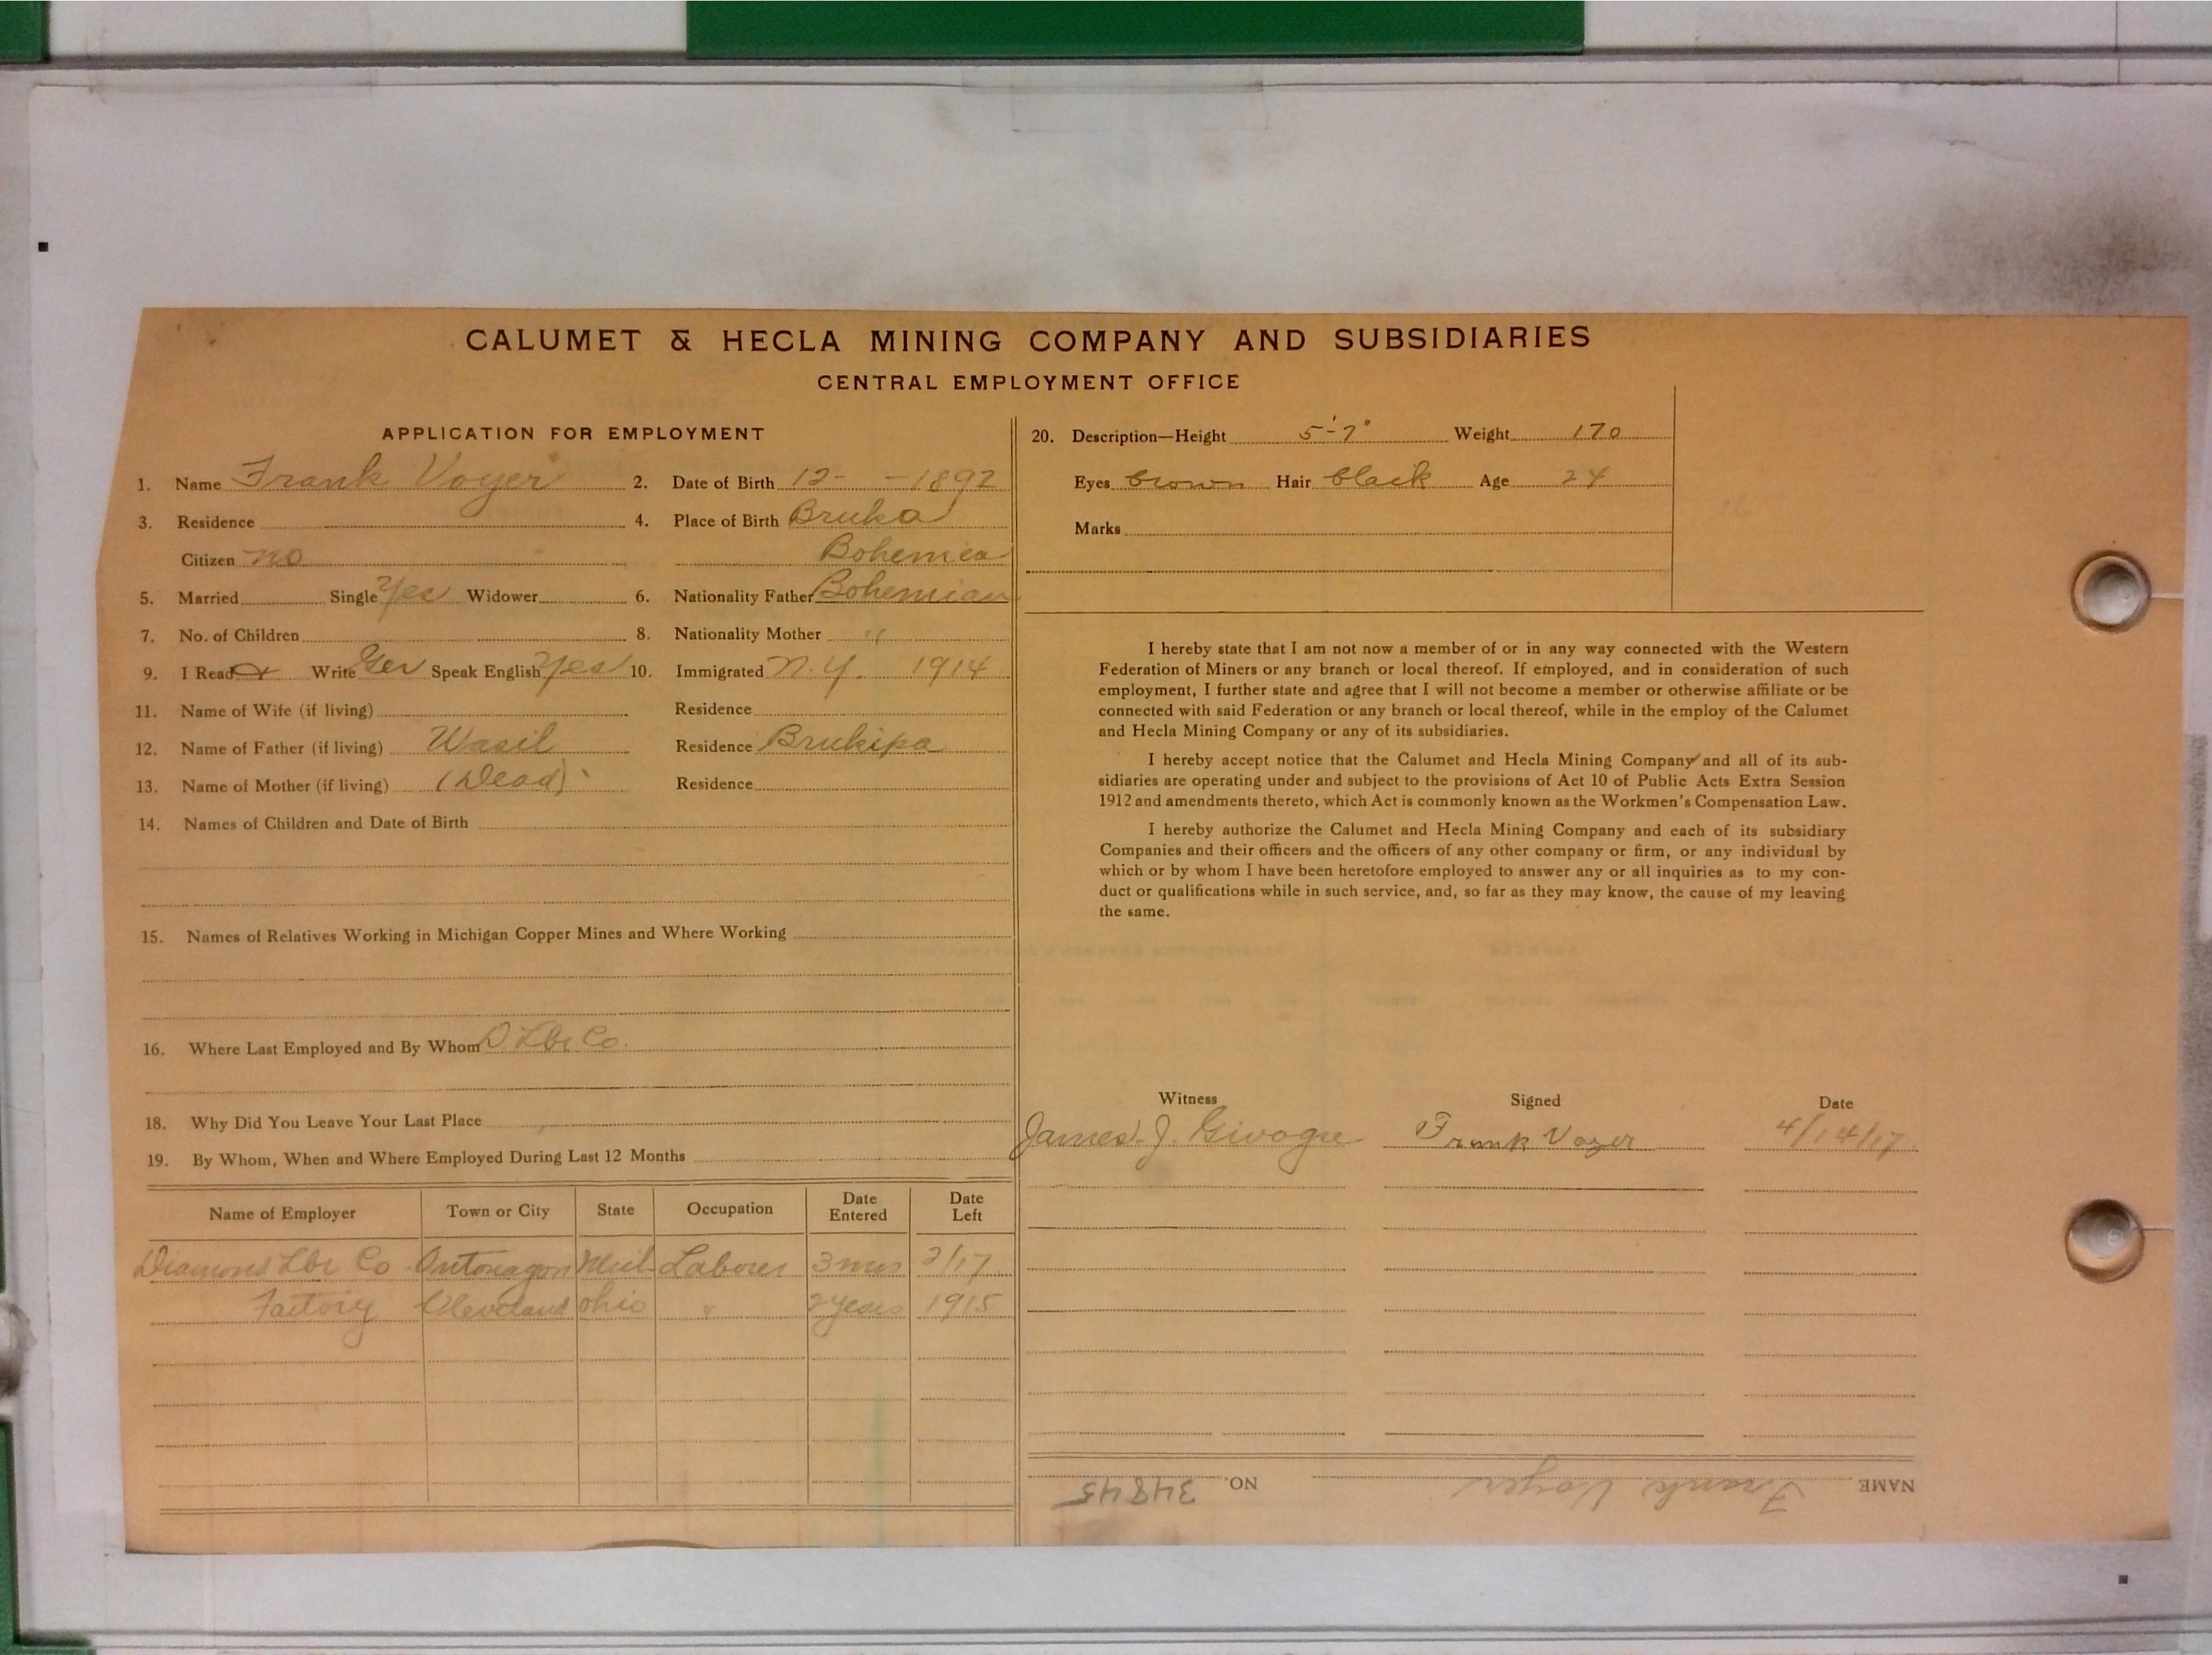 CALUMET & HECLA MINING COMPANY AND SUBSIDIARIES
CENTRAL EMPLOYMENT OFFICE
APPLICATION FOR EMPLOYMENT
1. Name Frank Voyer 2. Date of Birth 12- -1892
3. Residence 4. Place of Birth Bruka
Citizen no Bohemia
5. Married Single Yes Widower 6. Nationality Father Bohemian
7. No. of Children 8. Nationality Mother "
9. I Read & Write Ger Speak English Yes 10. Immigrated N.Y. 1914
11. Name of Wife (if living) Residence
12. Name of Father (if living) Wasil Residence Brukipa
13. Name of Mother (if living) (Dead) Residence
14. Names of Children and Date of Birth
15. Names of Relatives Working in Michigan Copper Mines and Where Working
16. Where Last Employed and By Whom D Lbr Co.
18. Why Did You Leave Your Last Place
19. By Whom, When and Where Employed During Last 12 Months
Name of Employer Town or City State Occupation Date Entered Date Left
Diamond Lbr Co Ontonagon Mich Laborer 3 mos 2/17
Factory Cleveland Ohio " 2 years 1915
20. Description—Height 5'-7" Weight 170
Eyes brown Hair black Age 24
Marks
I hereby state that I am not now a member of or in any way connected with the Western
Federation of Miners or any branch or local thereof. If employed, and in consideration of such
employment, I further state and agree that I will not become a member or otherwise affiliate or be
connected with said Federation or any branch or local thereof, while in the employ of the Calumet
and Hecla Mining Company or any of its subsidiaries.
I hereby accept notice that the Calumet and Hecla Mining Company and all of its sub-
sidiaries are operating under and subject to the provisions of Act 10 of Public Acts Extra Session
1912 and amendments thereto, which Act is commonly known as the Workmen's Compensation Law.
I hereby authorize the Calumet and Hecla Mining Company and each of its subsidiary
Companies and their officers and the officers of any other company or firm, or any individual by
which or by whom I have been heretofore employed to answer any or all inquiries as to my con-
duct or qualifications while in such service, and, so far as they may know, the cause of my leaving
the same.
Witness Signed Date
James J. Frank Voyer 4/14/17
NAME Frank Voyer NO. 34845